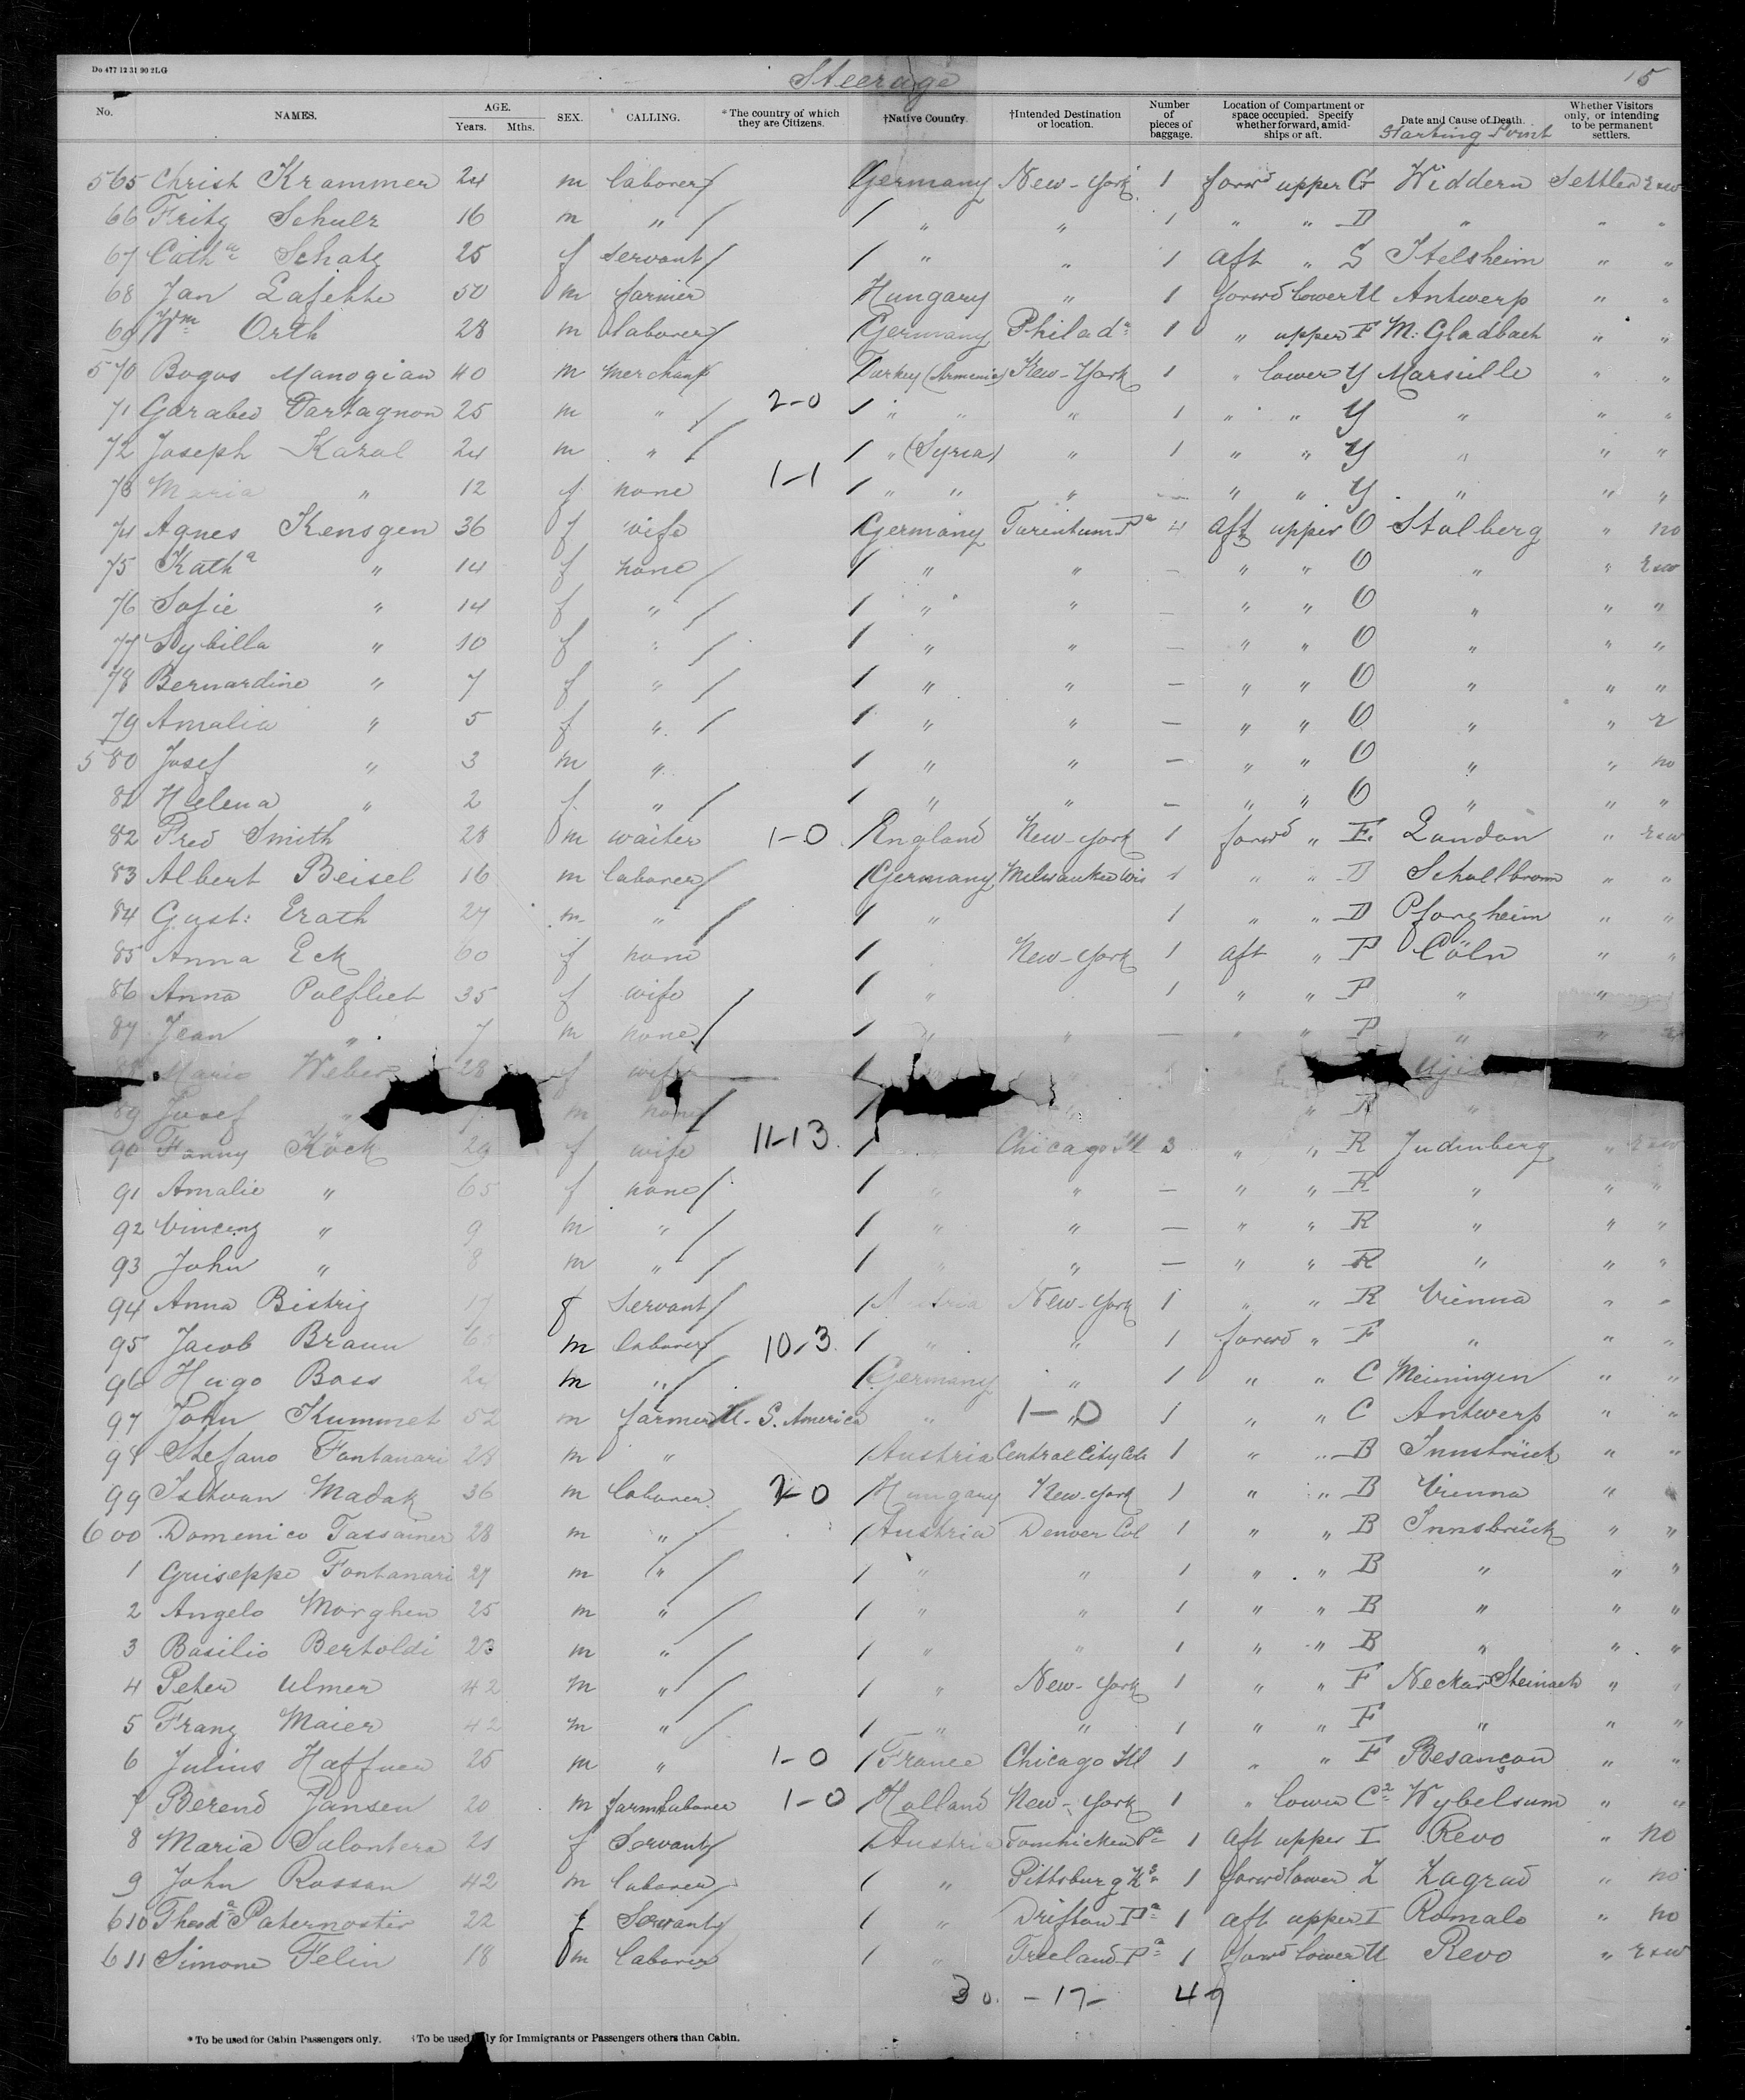 Do 477 12 31 90 2LG
Steerage 15
No. NAMES. AGE. Years. Mths. SEX. CALLING. *The country of which they are Citizens. †Native Country. †Intended Destination or location. Number of pieces of baggage. Location of Compartment or space occupied. Specify whether forward, amidships or aft. Date and Cause of Death. Starting Point Whether Visitors only, or intending to be permanent settlers.
565 Christ Krammer 24 m laborer Germany New-York 1 forwd upper G Widdern Settler r&w
66 Fritz Schulz 16 m " " " 1 " " D " " "
67 Catha Schatz 25 f servant " " 1 aft " S Itelsheim " "
68 Jan Lafehte 50 m farmer Hungary " 1 forwd lower U Antwerp " "
69 Wm Orth 28 m laborer Germany Philada 1 " upper F M: Gladbach " "
570 Bogos Manogian 40 m merchant Turkey (Armenia) New-York 1 " lower Y Marseille " "
71 Garabed Dartagnon 25 m " 2-0 " " " 1 " " Y " " "
72 Joseph Kazal 24 m " " (Syria) " 1 " " Y " " "
73 Maria " 12 f none 1-1 " " " — " " Y " " "
74 Agnes Kensgen 36 f wife Germany Tarentum Pa 4 aft upper O Stolberg " no
75 Katha " 14 f none " " — " " O " " r&w
76 Sofie " 14 f " " " — " " O " " "
77 Sybilla " 10 f " " " — " " O " " "
78 Bernardine " 7 f " " " — " " O " " "
79 Amalia " 5 f " " " — " " O " " r
580 Josef " 3 m " " " — " " O " " no
81 Helena " 2 f " " " — " " O " " "
82 Fred Smith 28 m waiter 1-0 England New-York 1 forwd " E. London " r&w
83 Albert Beisel 16 m laborer Germany Milwaukee Wis 1 " " D Schollbronn " "
84 Gust: Erath 27 m " " 1 " " D Pforzheim " "
85 Anna Eck 60 f none New-York 1 aft " P Cöln " "
86 Anna Polfliet 35 f wife " 1 " " P " "
87 Jean " 7 m none " " — " " P " "
Marie Weber 28 f wife
89 Josef " m none " " R "
90 Fanny Köck 29 f wife 11-13. Chicago Ill 3 " " R Judenberg " r&w
91 Amalie " 65 f none " " — " " R " " "
92 Vincenz " 9 m " " " — " " R " " "
93 John " 8 m " " " — " " R " " "
94 Anna Bistriz 17 f Servant Austria New-York 1 " " R Vienna " "
95 Jacob Braun m laborer 10-3. " " 1 forwd " F " " "
96 Hugo Boss 24 m " Germany " 1 " " C Meiningen " "
97 John Kummet 52 m farmer U. S. America " 1-0 " 1 " " C Antwerp " "
98 Stefano Fontanari 28 m " Austria Central City Col 1 " " B Innsbrück " "
99 Istvan Madak 36 m laborer 2-0 Hungary New-York 1 " " B Vienna "
600 Domenico Tassainer 28 m " Austria Denver Col 1 " " B Innsbrück " "
1 Guiseppe Fontanari 27 m " " " 1 " " B " " "
2 Angelo Morghen 25 m " " " 1 " " B " " "
3 Basilio Bertoldi 23 m " " " 1 " " B " " "
4 Peter Ulmer 42 m " " New-York 1 " " F Neckar Steinach " "
5 Franz Maier 42 m " " " 1 " " F " " "
6 Julius Haffner 25 m " 1-0 France Chicago Ill 1 " " F Besançon " "
7 Berend Jansen 20 m farmlaborer 1-0 Holland New-York 1 " lower C2 Wybelsum " "
8 Maria Salontera 21 f Servant Austria Tomhicken Pa 1 aft upper I Revo " no
9 John Rossan 42 m laborer " Pittsburg Ks 1 forwd lower Z Zagrad " no
610 Theoda Paternoster 22 f Servant " Drifton Pa 1 aft upper I Romalo " no
611 Simone Felin 18 m laborer " Freeland Pa 1 forwd lower U Revo " r&w
30. -17- 47
*To be used for Cabin Passengers only. †To be used only for Immigrants or Passengers others than Cabin.